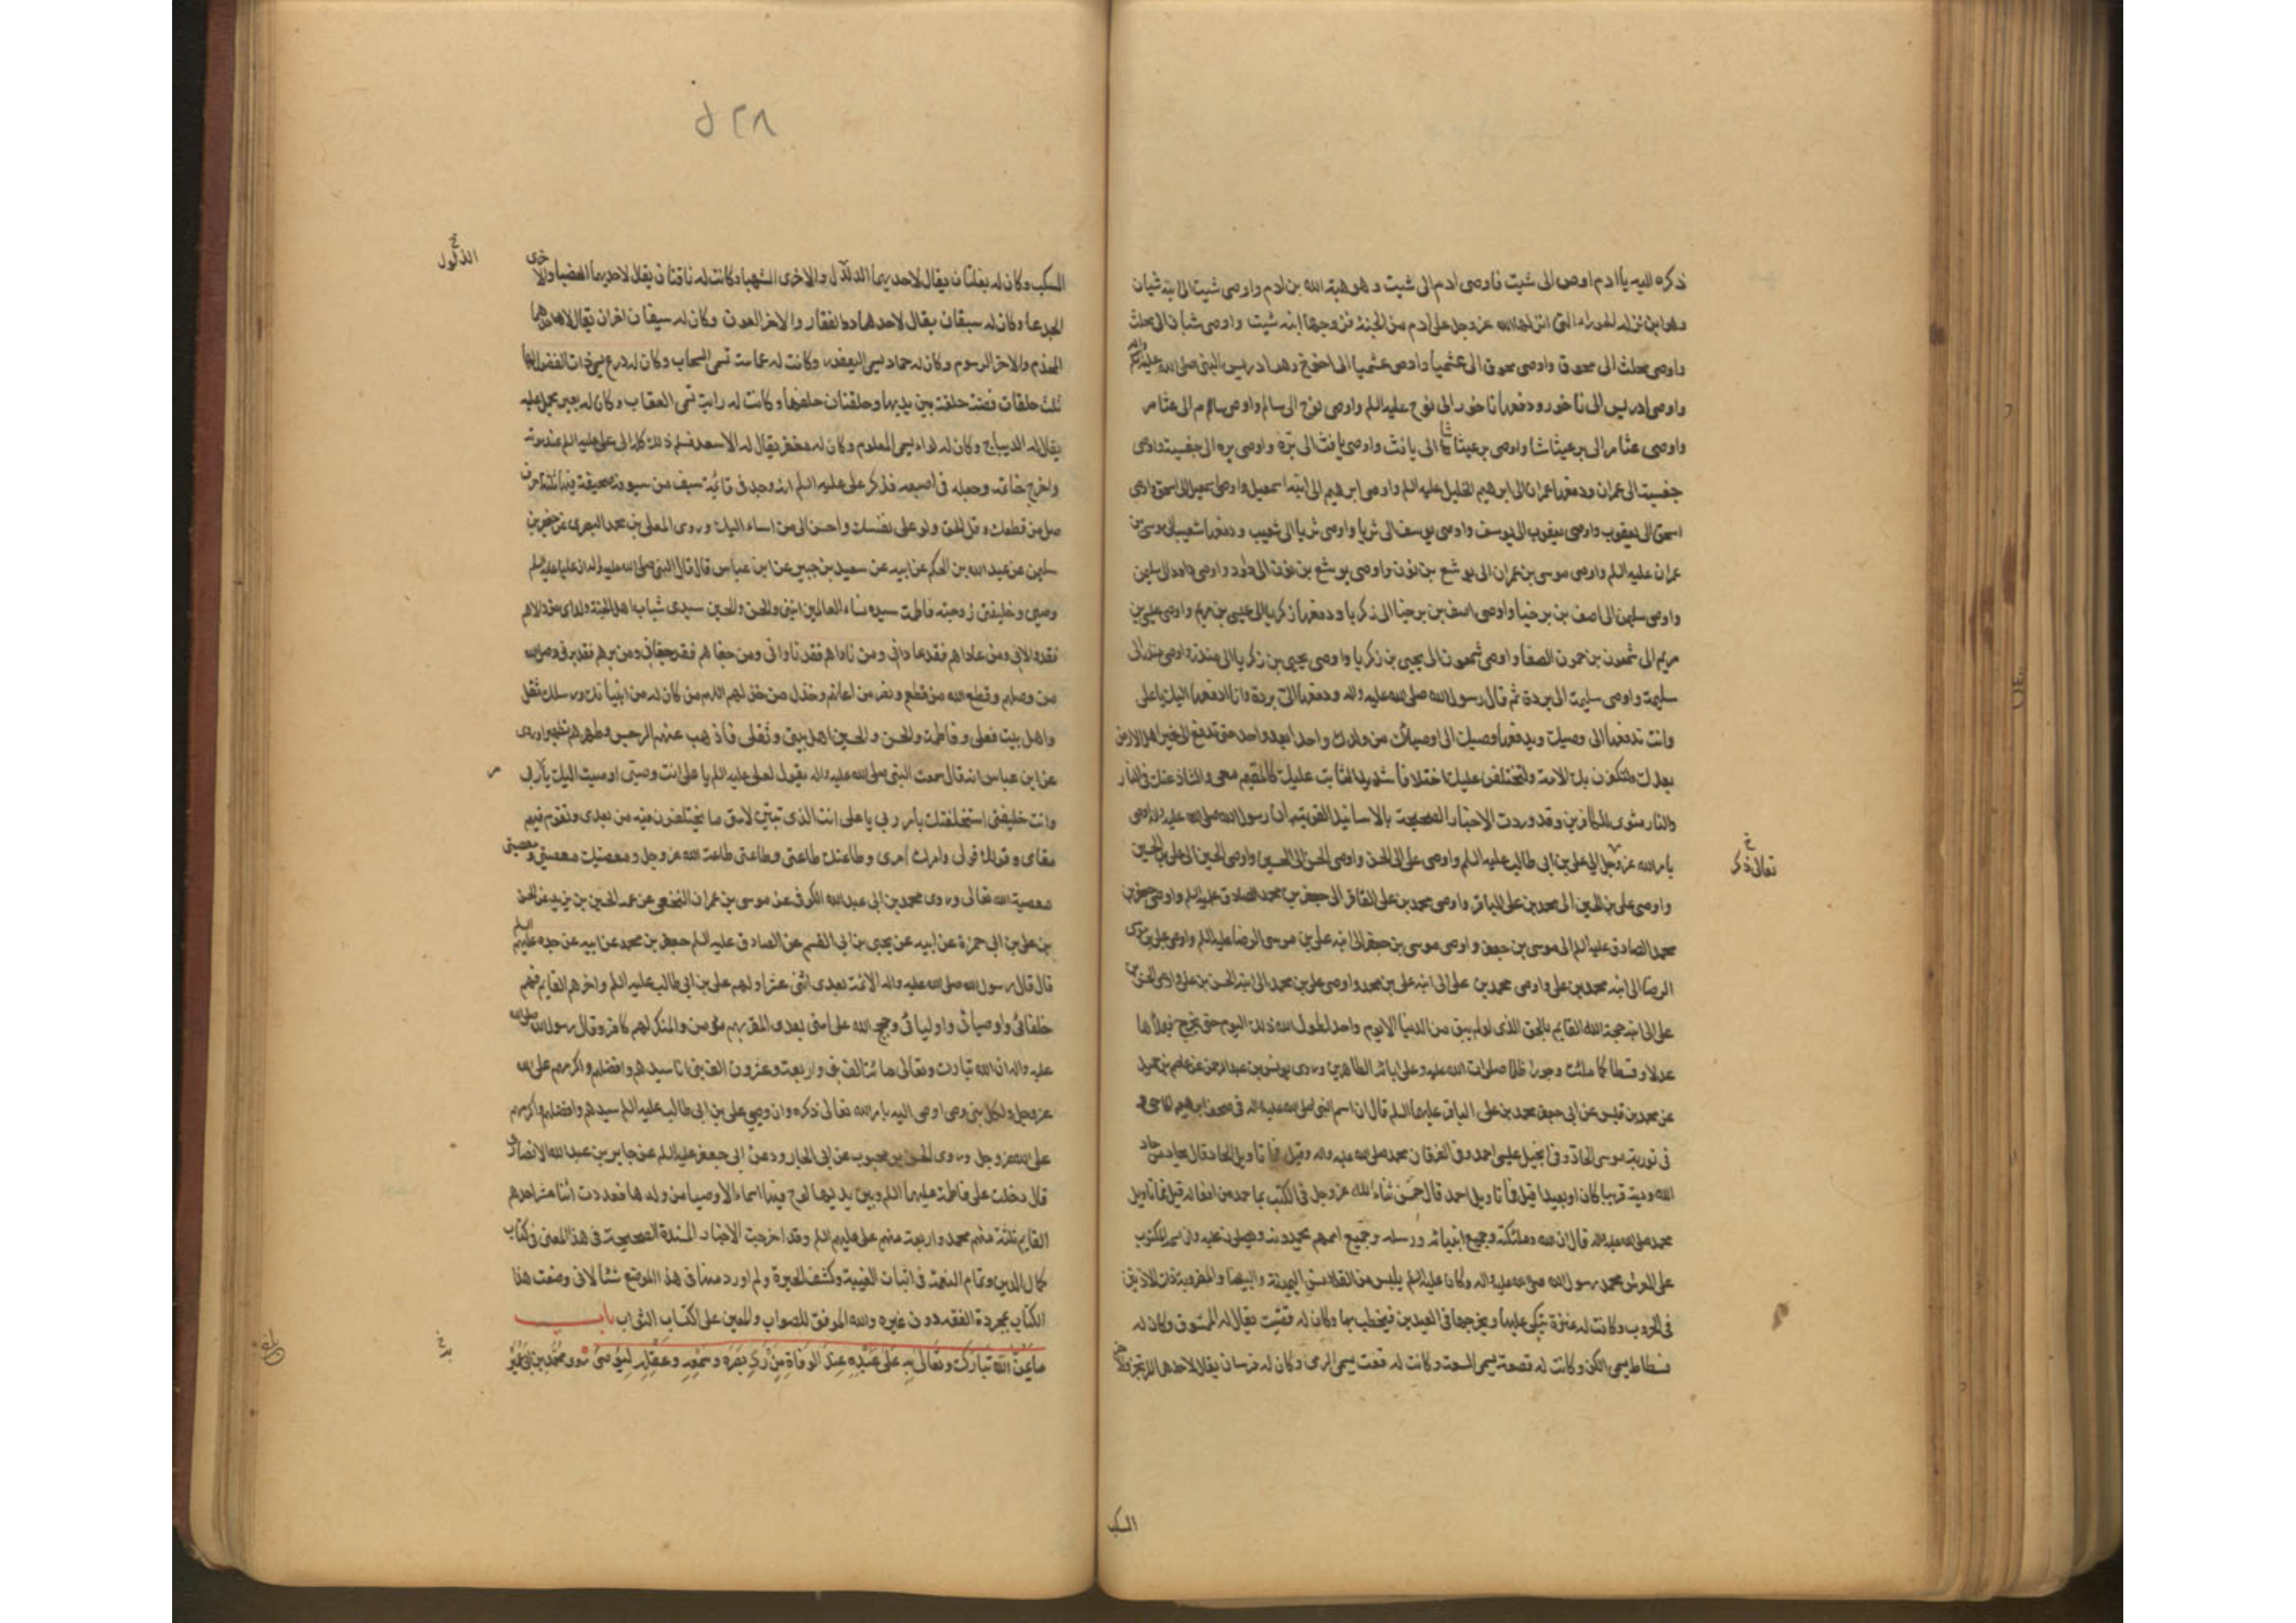 ذكره اليه يا ادم اوص الى شيث فاوصى ادم الى شيث وهو هبة الله بن ادم واوصى شيث الى ابنه شبان
وهو ابن نزلة الحوراء التى انزلها الله عز وجل على ادم من الجنة فزوجها ابنه شيث واوصى شبان الى محلث
واوصى محلث الى محوق واوصى محوق الى عثميا واوصى عثميا الى اخنوخ وهو ادريس النبى صلى الله عليه
واوصى ادريس الى ناخور ودفعها ناخور الى نوح عليه السلم واوصى نوح الى سام واوصى سام الى عثامر
واوصى عثامر الى برعيثاشا واوصى برعيثاشا الى يافث واوصى يافث الى بره واوصى بره الى جفسيه واوصى
جفسيه الى عمران ودفعها عمران الى ابرهيم الخليل عليه السلم واوصى ابرهيم الى ابنه اسمعيل واوصى اسمعيل الى اسحق واوصى
اسحق الى يعقوب واوصى يعقوب الى يوسف واوصى يوسف الى بثريا واوصى بثريا الى شعيب ودفعها شعيب الى موسى بن
عمران عليه السلم واوصى موسى بن عمران الى يوشع بن نون واوصى يوشع بن نون الى داود واوصى داود الى سليمن
واوصى سليمن الى اصف بن برخيا واوصى اصف بن برخيا الى زكريا ودفعها زكريا الى عيسى بن مريم واوصى عيسى بن
مريم الى شمعون بن حمون الصفا واوصى شمعون الى يحيى بن زكريا واوصى يحيى بن زكريا الى منذر واوصى منذر الى
سليمة واوصى سليمة الى بردة ثم قال رسول الله صلى الله عليه واله ودفعها الى بردة وانا ادفعها اليك يا على
وانت تدفعها الى وصيك ويدفعها وصيك الى اوصيائك من ولدك واحدا بعد واحد حتى تدفع الى خير اهل الارض
بعدك ولتكفرن بك الامة ولتختلفن عليك اختلافا شديدا الثابت عليك كالمقيم معى والشاذ عنك فى النار
والنار مثوى للكافرين وقد وردت الاخبار الصحيحة بالاسانيد القوية ان رسول الله صلى الله عليه واله اوصى
بامر الله عز وجل الى على بن ابى طالب عليه السلم واوصى على الى الحسن واوصى الحسن الى الحسين واوصى الحسين الى على بن الحسين
تعالى ذكره خ
واوصى على بن الحسين الى محمد بن على الباقر واوصى محمد بن على الباقر الى جعفر بن محمد الصادق عليه السلم واوصى جعفر بن
محمد الصادق عليه السلم الى موسى بن جعفر واوصى موسى بن جعفر الى ابنه على بن موسى الرضا عليه السلم واوصى على بن موسى
الرضا الى ابنه محمد بن على واوصى محمد بن على الى ابنه على بن محمد واوصى على بن محمد الى ابنه الحسن بن على واوصى الحسن بن
على الى ابنه حجة الله القايم بالحق الذى لو لم يبق من الدنيا الا يوم واحد لطول الله ذلك اليوم حتى يخرج فيملأها
عدلا وقسطا كما ملئت جورا وظلما صلوات الله عليه وعلى ابائه الطاهرين وروى يونس بن عبد الرحمن عن عاصم بن حميد
عن محمد بن قيس عن ابى جعفر محمد بن على الباقر عليهما السلم قال ان اسم النبى صلى الله عليه واله فى صحف ابرهيم الماحى و
فى تورية موسى الحاد وفى انجيل عيسى احمد وفى الفرقان محمد صلى الله عليه واله وقيل فما تاويل الماحى قال
الله ودينه قريبا كان او بعيدا قيل فما تاويل احمد قال حسن ثناء الله عز وجل فى الكتب بما حمد من افعاله قيل فما تاويل
محمد صلى الله عليه واله قال ان الله وملئكته وجميع انبيائه ورسله وجميع اممهم يحمدونه ويصلون عليه وان اسمه لمكتوب
على العرش محمد رسول الله صلى الله عليه واله وكان عليه السلم يلبس من القلانس اليمنية والبيضا والمضربة ذات الاذنين
فى الحروب وكانت له عنزة يتكى عليها ويخرجها فى العيدين فيخطب بها وكان له قضيب يقال له الممشوق وكان له
فسطاط يسمى الكن وكانت له قصعة يسمى السعة وكانت له قعب يسمى الرى وكان له فرسان يقال لاحدهما المرتجز وللاخر
السكب
٥٢٨
السكب وكان له بغلتان يقال لاحديهما الدلدل والاخرى الشهبا وكانت له ناقتان يقال لاحديهما العضبا والاخرى
الذلول خ
الجدعا وكان له سيفان يقال لاحدهما ذو الفقار والاخر العون وكان له سيفان اخران يقال لاحدهما
المخذم والاخر الرسوم وكان له حمار يسمى اليعفور وكانت له عمامة تسمى السحاب وكان له درع يسمى ذات الفضول لها
ثلث حلقات فضة حلقة بين يديها وحلقتان خلفها وكانت له راية تسمى العقاب وكان له بعير يحمل عليه
يقال له الديباج وكان له لواء يسمى المعلوم وكان له مغفر يقال له الاسعد فسلم ذلك كله الى على عليه السلم عند موته
واخرج خاتمه وجعله فى اصبعه فذكر على عليه السلم انه وجد فى قائمة سيف من سيوفه صحيفة فيها ثلثة احرف
صل من قطعك وقل الحق ولو على نفسك واحسن الى من اساء اليك وروى المعلى بن محمد البصرى عن جعفر بن
سليمن عن عبد الله بن الحكم عن ابيه عن سعيد بن جبير عن ابن عباس قال قال النبى صلى الله عليه واله ان عليا عليه السلم
وصيى وخليفتى زوجته فاطمة سيدة نساء العالمين ابنتى والحسن والحسين سيدى شباب اهل الجنة ولداى من والاهم
فقد والانى ومن عاداهم فقد عادانى ومن ناواهم فقد ناوانى ومن جفاهم فقد جفانى ومن برهم فقد برنى وصل الله
من وصلهم وقطع الله من قطعهم ونصر من اعانهم وخذل من خذلهم اللهم من كان له من انبيائك ورسلك ثقل
واهل بيت فعلى وفاطمة والحسن والحسين اهل بيتى وثقلى فاذهب عنهم الرجس وطهرهم تطهيرا وروى
عن ابن عباس انه قال سمعت النبى صلى الله عليه واله يقول لعلى عليه السلم يا على انت وصيى اوصيت اليك بامر ربى
وانت خليفتى استخلفتك بامر ربى يا على انت الذى تبين لامتى ما يختلفون فيه من بعدى وتقوم فيهم
مقامى وقولك قولى وامرك امرى وطاعتك طاعتى وطاعتى طاعة الله عز وجل ومعصيتك معصيتى ومعصيتى
معصية الله تعالى وروى محمد بن ابى عبد الله الكوفى عن موسى بن عمران النخعى عن عمه الحسين بن يزيد عن الحسن
بن على بن ابى حمزة عن ابيه عن يحيى بن ابى القسم عن الصادق عليه السلم جعفر بن محمد عن ابيه عن جده عليهم السلم
قال قال رسول الله صلى الله عليه واله الائمة بعدى اثنى عشر اولهم على بن ابى طالب عليه السلم واخرهم القايم فهم
خلفائى واوصيائى واوليائى وحجج الله على امتى بعدى المقر بهم مؤمن والمنكر لهم كافر وقال رسول الله صلى الله
عليه واله ان الله تبارك وتعالى مائة الف نبى واربعة وعشرون الف نبى انا سيدهم وافضلهم واكرمهم على الله
عز وجل ولكل نبى وصى اوصى اليه بامر الله تعالى ذكره وان وصيى على بن ابى طالب عليه السلم سيدهم وافضلهم واكرمهم
على الله عز وجل وروى الحسن بن محبوب عن ابى الجارود عن ابى جعفر عليه السلم عن جابر بن عبد الله الانصارى
قال دخلت على فاطمة عليها السلم وبين يديها لوح فيها اسماء الاوصيا من ولدها فعددت اثنا عشر احدهم
القايم ثلثة منهم محمد واربعة منهم على عليهم السلم وقد اخرجت الاخبار المسندة الصحيحة فى هذا المعنى فى كتاب
كمال الدين وتمام النعمة فى اثبات الغيبة وكشف الحيرة ولم اورد منها فى هذا الموضع شيئا لانى وضعت هذا
الكتاب بمجردة الفقه دون غيره والله الموفق للصواب والمعين على اكتساب الثواب باب
ما يمن الله تبارك وتعالى به على عبده عند الوفاة من رد بصره وسمعه وعقله ليوصى روى محمد بن ابى عمير